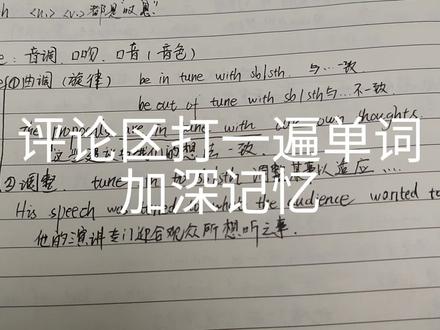 <n.> <v.> 都是"叹息"
: 音调、口吻、口音(音色)
①曲调(旋律) be in tune with sb/sth. 与...一致
be out of tune with sb/sth与...不一致.
The proposals are in tune with our own thoughts.
这些建议与我们的想法一致.
评论区打一遍单词
加深记忆
②调整. tune to sb/sth 调整某事以适应...
His speech was tuned to what the audience wanted to
他的演讲专门迎合观众所想听之事.